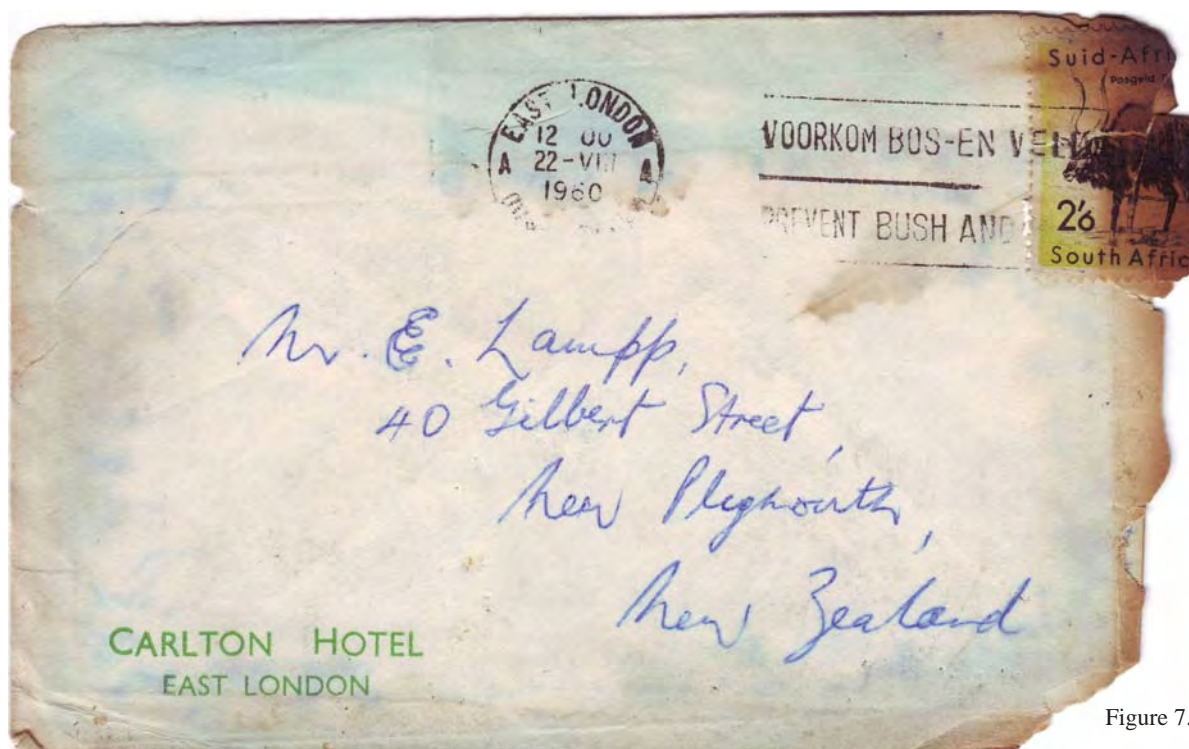 EAST LONDON
12 00
22-VIII
1960
A A
VOORKOM BOS-EN VEL
PREVENT BUSH AND
Suid-Afri
Posgeld
2'6
South Afric
Mr. E. Lampp,
40 Gilbert Street,
New Plymouth,
New Zealand
CARLTON HOTEL
EAST LONDON
Figure 7.